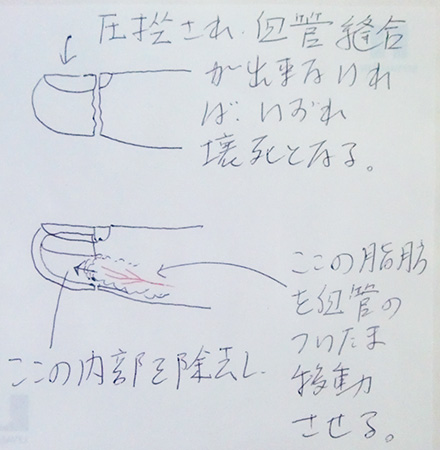 圧挫され、血管縫合
が出来なけれ
ば、いずれ
壊死となる。
ここの脂肪
を血管の
ついたまま
移動
させる。
ここの内部を除去し、